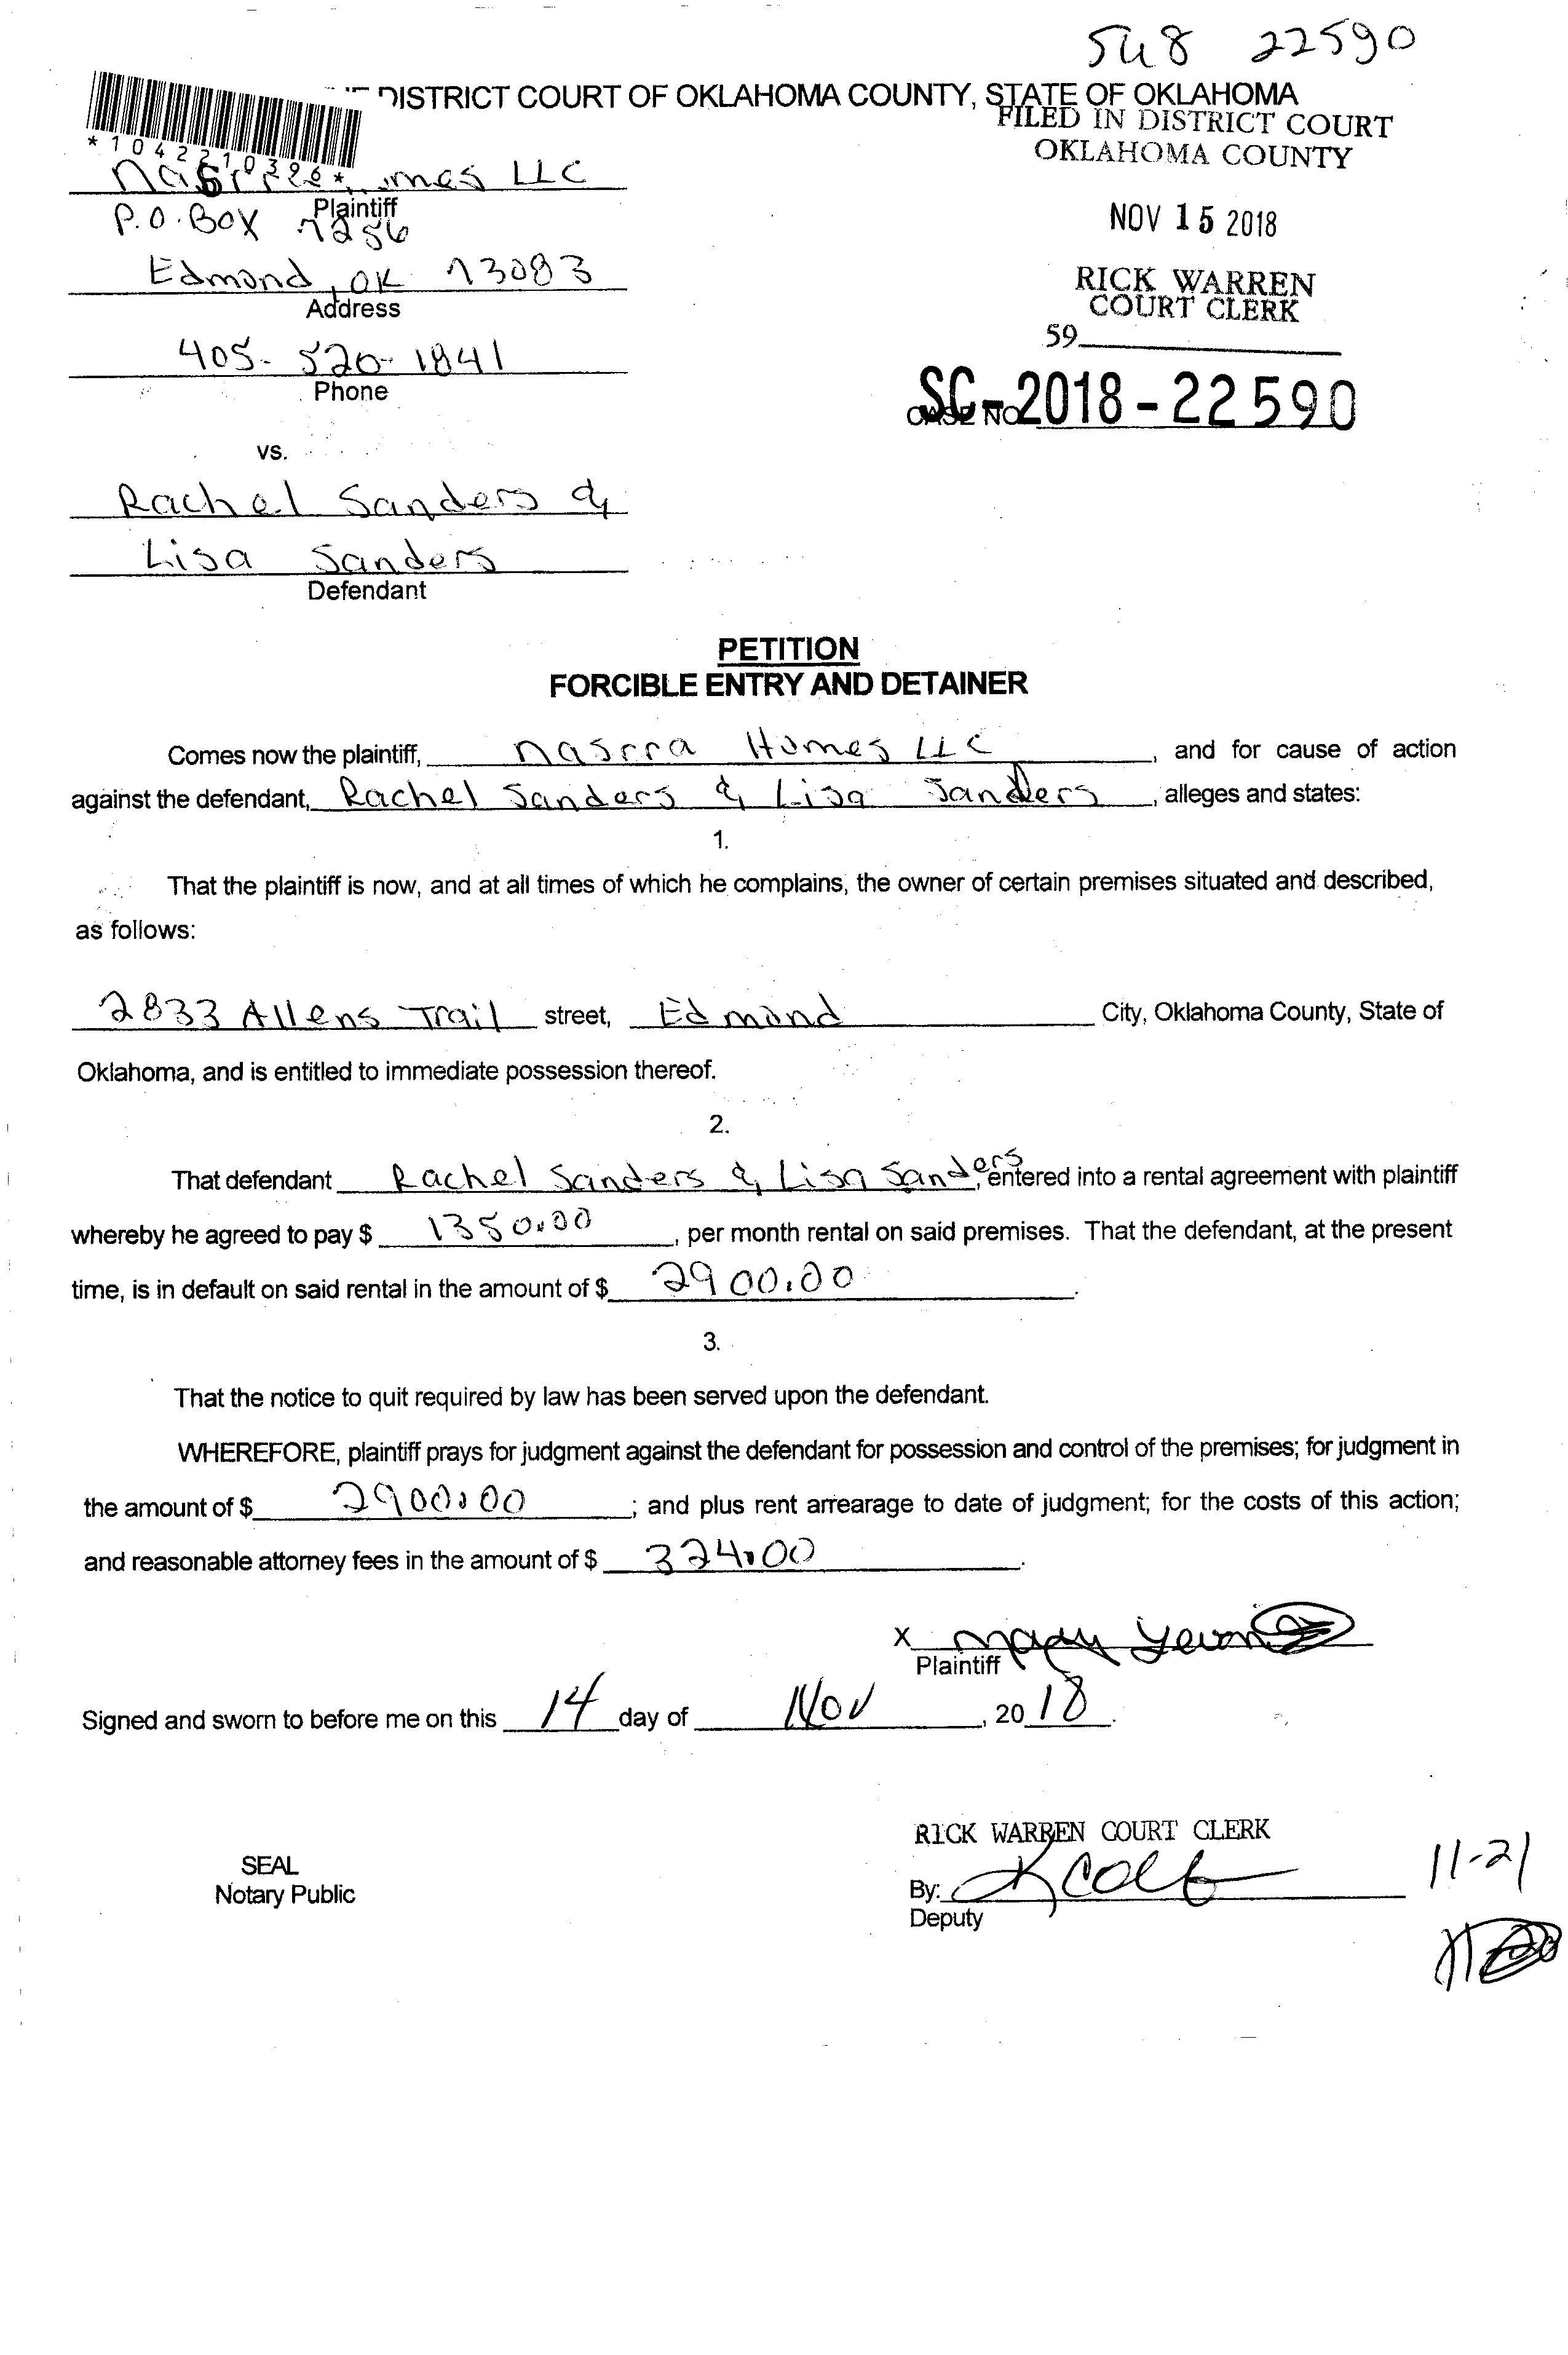 548 22590
DISTRICT COURT OF OKLAHOMA COUNTY, STATE OF OKLAHOMA
FILED IN DISTRICT COURT
OKLAHOMA COUNTY
*1042210396*
LLC
Plaintiff
P.O. Box 7256
Edmond, OK 73083
Address
405-520-1841
Phone
NOV 15 2018
RICK WARREN
COURT CLERK
59
CASE NO. SC-2018-22590
vs.
Rachel Sanders &
Lisa Sanders
Defendant
PETITION
FORCIBLE ENTRY AND DETAINER
Comes now the plaintiff, Nasrra Homes LLC, and for cause of action
against the defendant, Rachel Sanders & Lisa Sanders, alleges and states:
1.
That the plaintiff is now, and at all times of which he complains, the owner of certain premises situated and described,
as follows:
2833 Allens Trail street, Edmond City, Oklahoma County, State of
Oklahoma, and is entitled to immediate possession thereof.
2.
That defendant Rachel Sanders & Lisa Sanders, entered into a rental agreement with plaintiff
whereby he agreed to pay $ 1350.00, per month rental on said premises. That the defendant, at the present
time, is in default on said rental in the amount of $ 2900.00.
3.
That the notice to quit required by law has been served upon the defendant.
WHEREFORE, plaintiff prays for judgment against the defendant for possession and control of the premises; for judgment in
the amount of $ 2900.00; and plus rent arrearage to date of judgment; for the costs of this action;
and reasonable attorney fees in the amount of $ 324.00.
X
Plaintiff
Signed and sworn to before me on this 14 day of Nov, 2018.
RICK WARREN COURT CLERK
SEAL
Notary Public
By:
Deputy
11-21